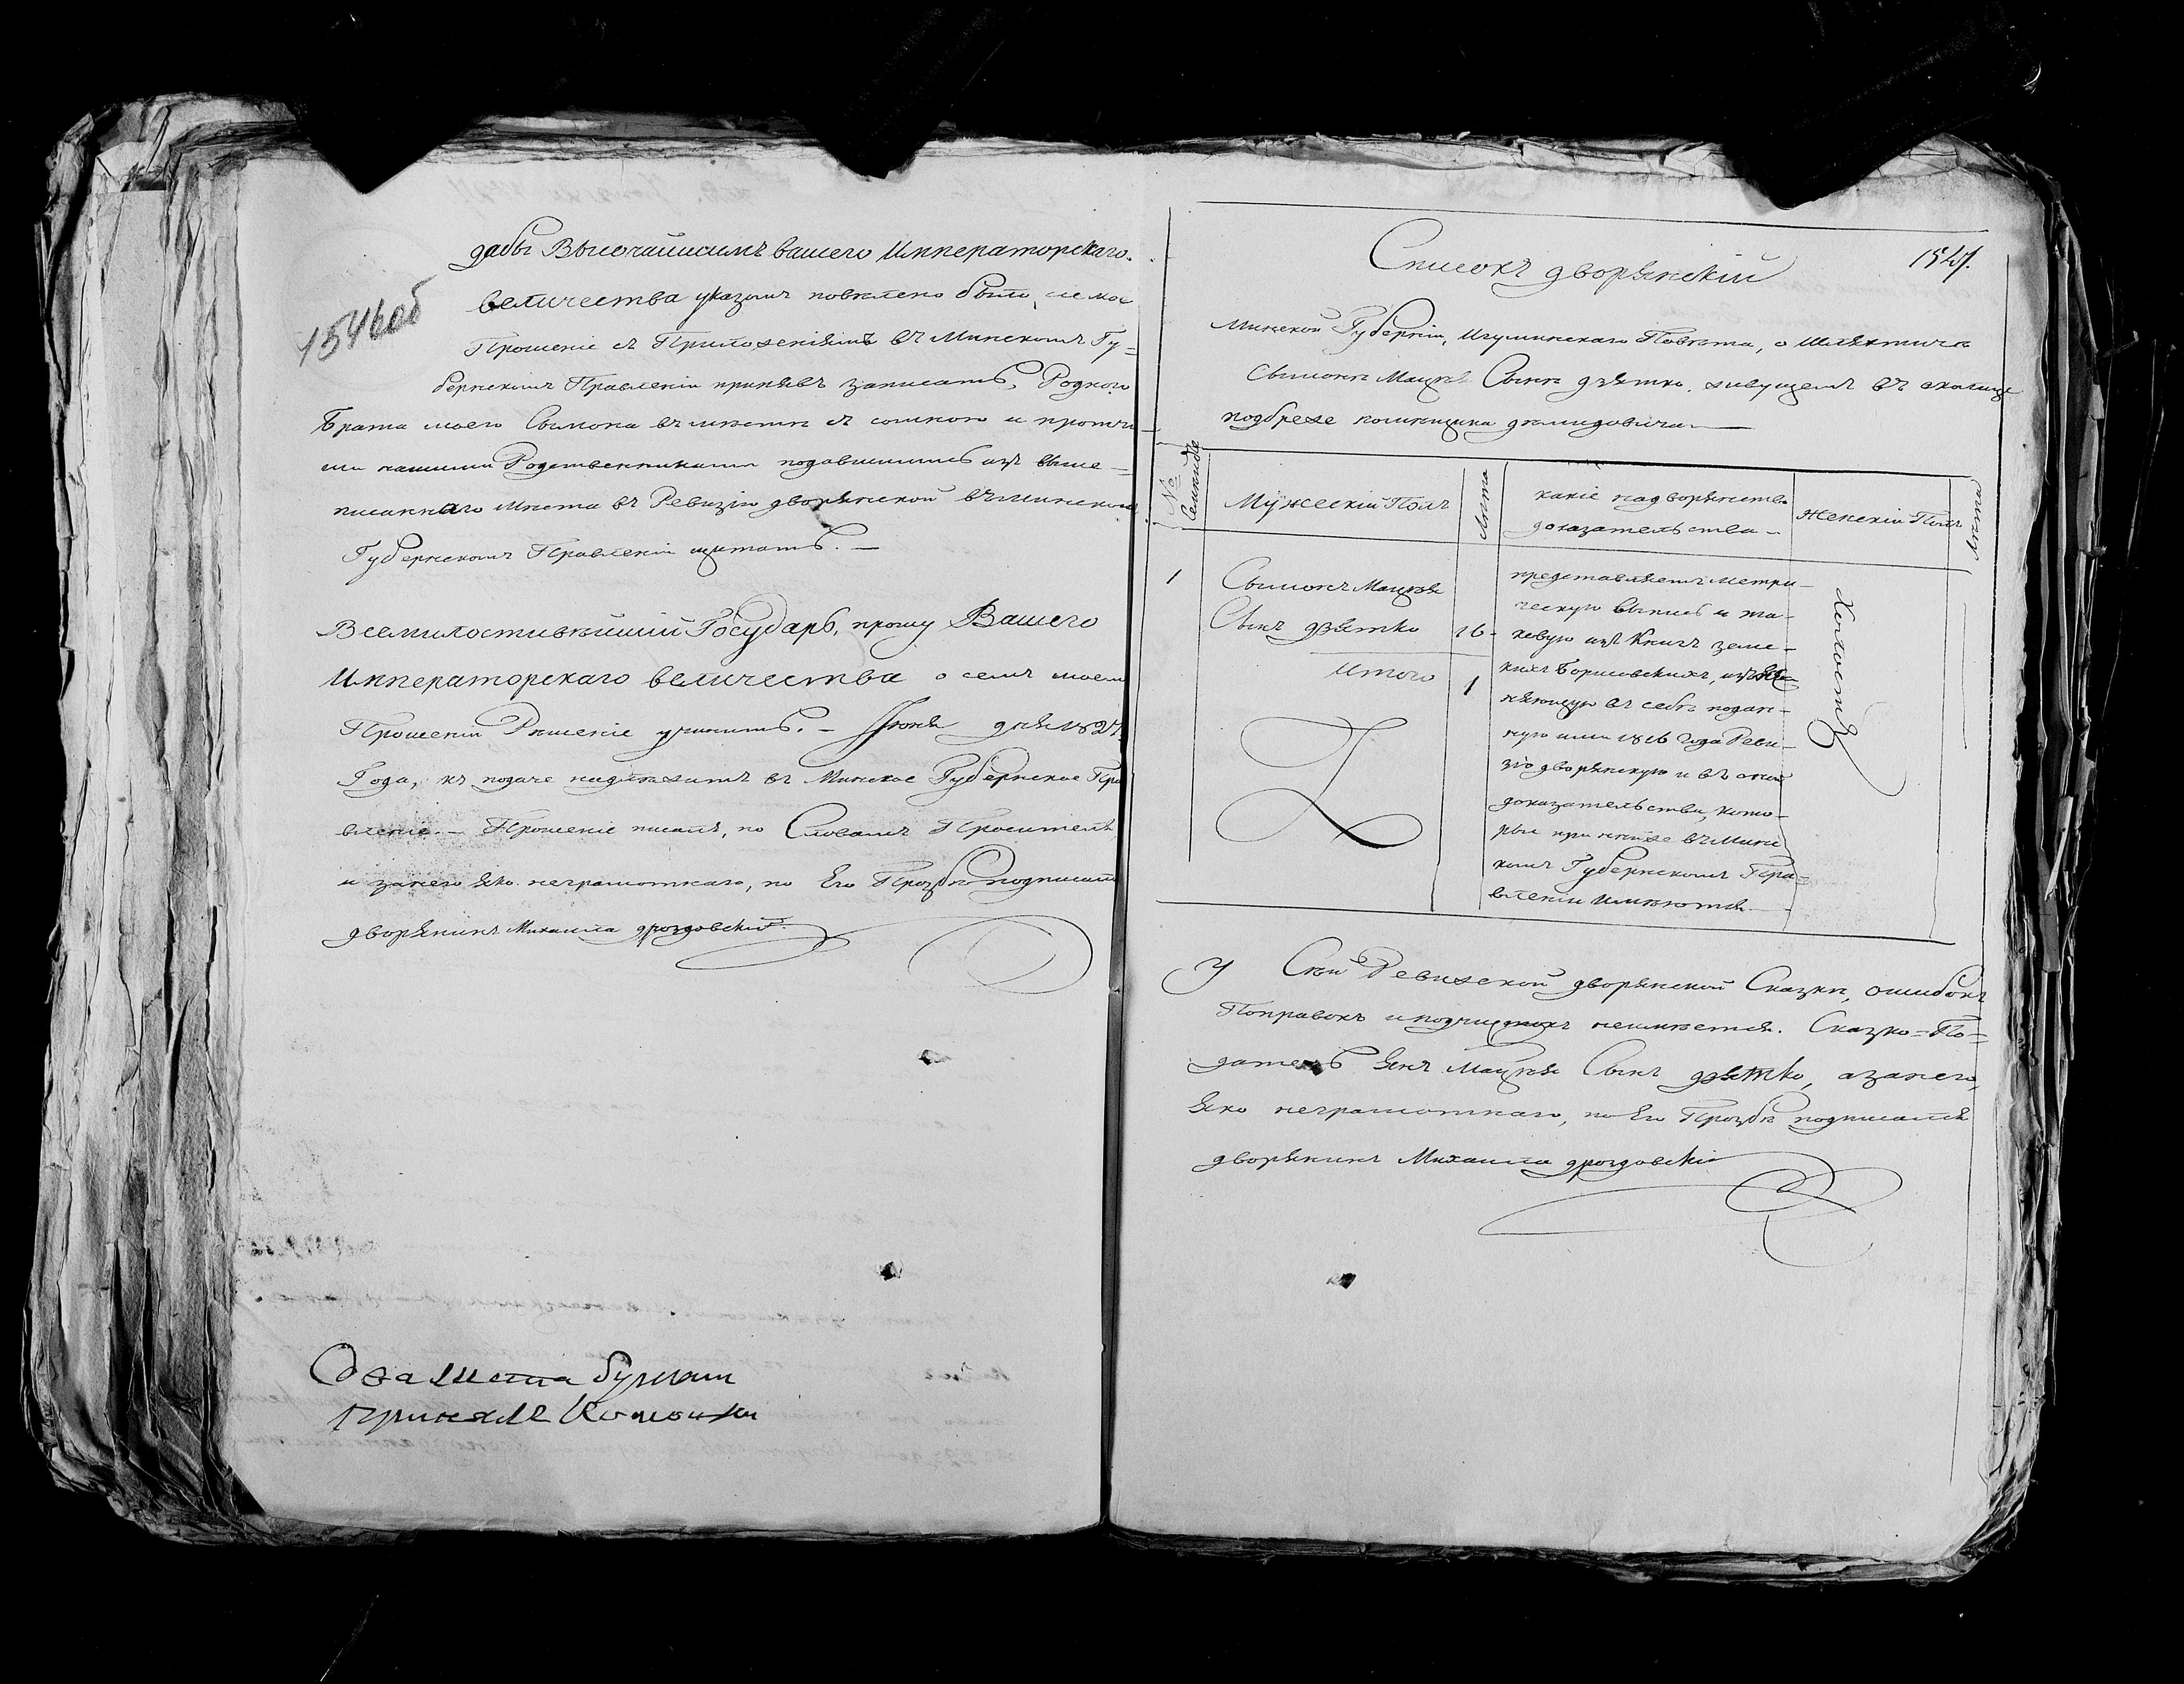 1546об
дабы Высочайшимъ вашего Императорскаго
величества указомъ повелено было, сие мое
Прошеніе съ Приложеніямъ въ Минскомъ Гу=
бернскимъ Правленіи принявъ записать, Роднаго
Брата моего Сымона въместе съ сомною и протчи
ми нашими Родственниками подавшимись изъ выше-
писаннаго Места въ Ревизіи дворянской въ Минскомъ
Губернскомъ Правленіи щитать. —
Всемилостивѣйшій Государь, прошу Вашего
Императорскаго величества о семъ моемъ
Прошеніи Рѣшеніе учинить. — Іюня дня 182
Года, къ подаче надлежитъ въ Минское Губернское Пра
вленіе. — Прошеніе писалъ, по Словамъ Просителя
и занего яко неграмотнаго, по Его Прозбѣ подписалъ
дворянинъ Михаила дроздовскій
Принялъ
1547.
Списокъ дворянскій
Минской Губерніи, Игуминскаго Повѣта, о Шляхтичѣ
Сымонѣ Мацѣя Сынѣ дзятко живущемъ въ околице
подбреже помѣщика демидовича. —
№ Семинова
Мужескій Полъ
Лѣта
какіе надворянство
доказательства —
Женскій Полъ
Лѣта
1
Сымонъ Мацѣя
Сынъ дзятко 26
Итого 1
представляетъ метри-
ческую выпись и та-
ковую изъ Книгъ земс-
кихъ Борисовскихъ,
няющую въ себѣ подан-
ную ими 1816 года Реви-
зію дворянскую и въ оной
доказательства, кото-
рые при ней же въ Минс
комъ Губернскомъ Пра-
вленіи имѣются. —
Холостъ
У Сей Ревизской дворянской Сказки, ошибокъ
Поправокъ и подчистокъ неимѣется. Сказко=По=
датель Янъ Мацѣя Сынъ дзятко, а занего
яко неграмотнаго, по Его Прозбѣ подписался
дворянинъ Михаила дроздовскій